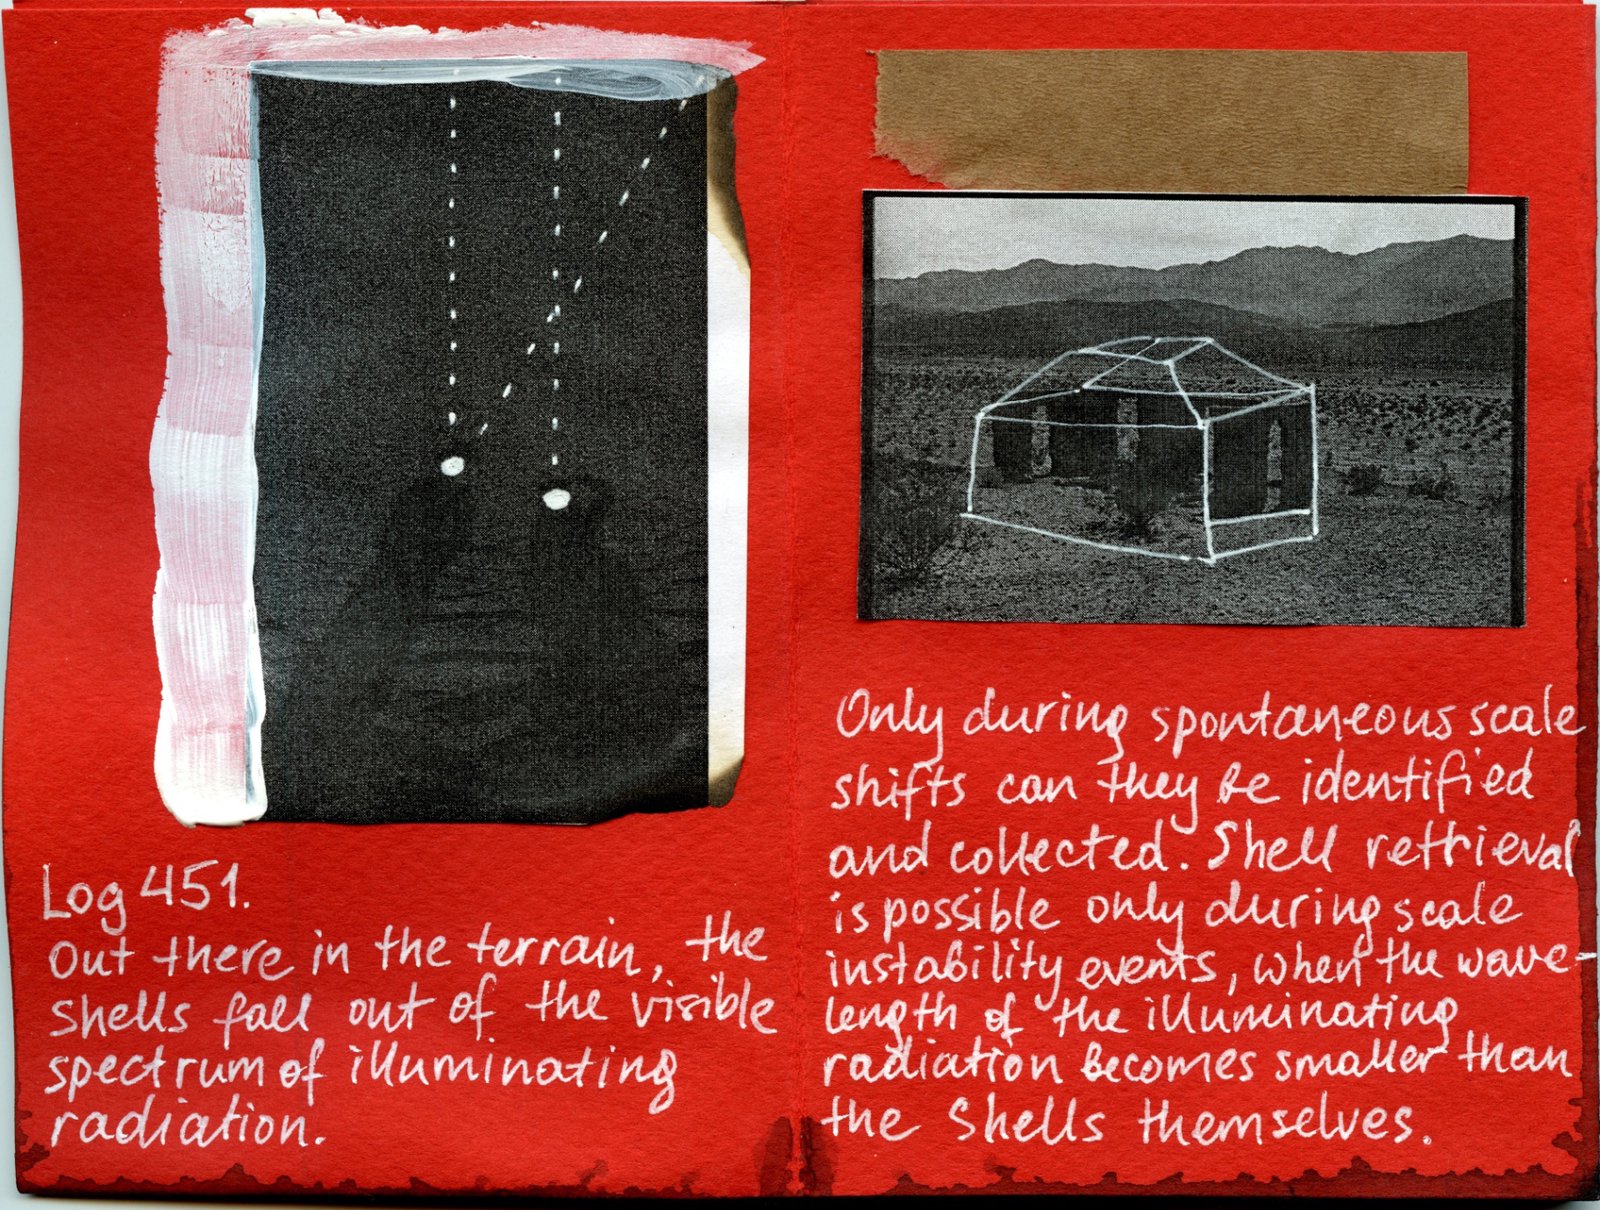 Log 451.
Out there in the terrain, the
Shells fall out of the visible
spectrum of illuminating
radiation.
Only during spontaneous scale
shifts can they be identified
and collected. Shell retrieval
is possible only during scale
instability events, when the wave-
length of the illuminating
radiation becomes smaller than
the Shells themselves.